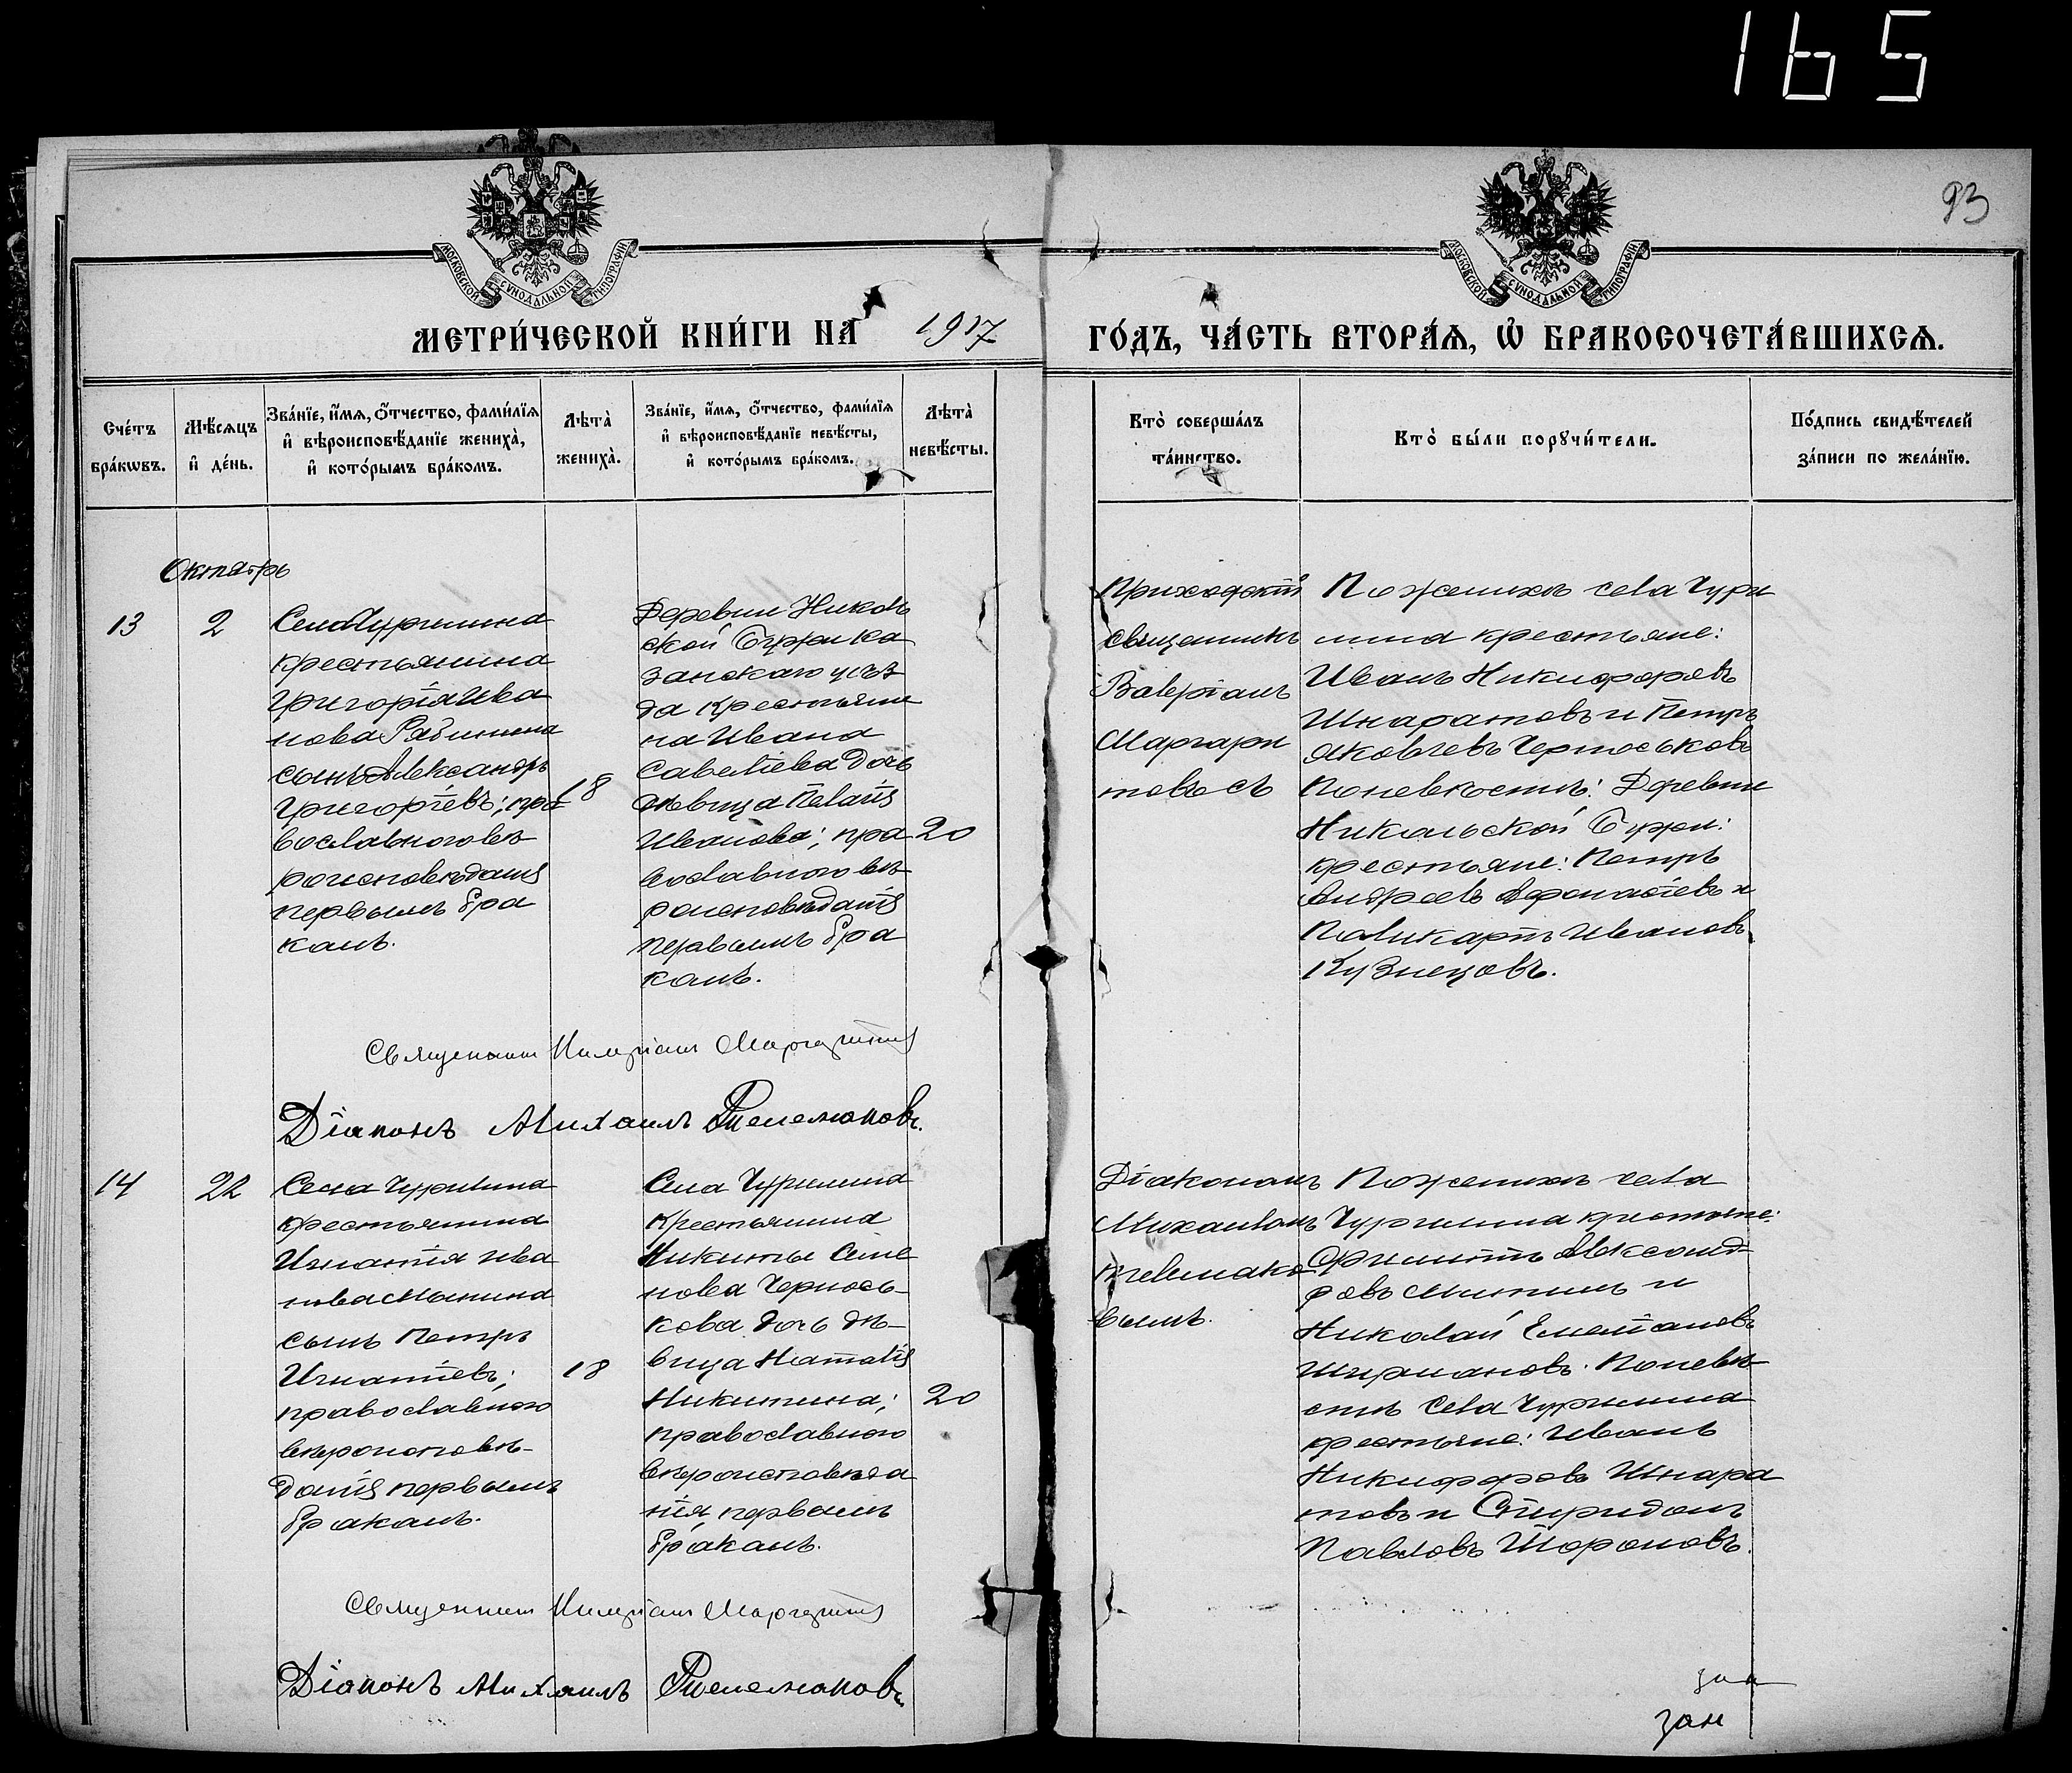 165
93
МОСКОВСКОЙ СѴНОДАЛЬНОЙ ТИПОГРАФІИ
МОСКОВСКОЙ СѴНОДАЛЬНОЙ ТИПОГРАФІИ
МЕТРИ́ЧЕСКОЙ КНИ́ГИ НА 1917
ГО́ДЪ, ЧА́СТЬ ВТОРА́Ѧ, Ѽ БРАКОСОЧЕТА́ВШИХСѦ.
Сче́тъ
бра́кѡвъ.
Мѣ́сѧцъ
и҆ де́нь.
Зва́нїе, и҆́мѧ, ѻ҆́тчество, фами́лїѧ
и҆ вѣроисповѣ́данїе жениха̀,
и҆ кото́рымъ бра́комъ.
Лѣта̀
жениха̀.
Зва́нїе, и҆́мѧ, ѻ҆́тчество, фами́лїѧ
и҆ вѣроисповѣ́данїе невѣ́сты,
и҆ кото́рымъ бра́комъ.
Лѣта̀
невѣ́сты.
Кто̀ соверша́лъ
та́инство.
Кто̀ бы́ли порꙋчи́тели.
По́дпись свидѣ́телей
за́писи по жела́нїю.
Октябрь
13
2
Села Чурилина
крестьянина
Григорія Ива
нова Рябинина
сынъ Александръ
Григоріевъ; пра
вославнаго вѣ
роисповѣданія
первымъ бра
комъ.
18
Деревни Николь
ской
занскаго уѣз
да крестьяни
на Ивана
Савельева дочь
дѣвица Пелагія
Иванова; пра
вославнаго вѣ
роисповѣданія
первымъ бра
комъ.
20
Приходскій
священникъ
Валеріанъ
Маргари
товъ съ
По женихѣ села Чури
лина крестьяне:
Иванъ Никифоровъ
Шкаратовъ и Петръ
Яковлевъ Черноськовъ
По невѣстѣ: Деревни
Никольской
крестьяне: Петръ
Андреевъ Афонасіевъ и
Поликарпъ Ивановъ
Кузнецовъ.
Священникъ Валеріанъ Маргаритовъ
Діаконъ Михаилъ
14
22
Села Чурилина
крестьянина
Игнатія Ива
нова
сынъ Петръ
Игнатіевъ;
православнаго
вѣроисповѣ-
данія первымъ
бракомъ.
18
Села Чурилина
крестьянина
Никиты Семе
нова Чернось-
кова дочь дѣ-
вица Наталія
Никитина;
православнаго
вѣроисповѣда
нія, первымъ
бракомъ.
20
Діакономъ
Михаиломъ
вымъ.
По женихѣ села
Чурилина крестьяне:
Филиппъ Александ-
ровъ Митинъ и
Николай Емельяновъ
По невѣ-
стѣ села Чурилина
крестьяне: Иванъ
Никифоровъ Шкара
товъ и Спиридонъ
Павловъ
Священникъ Валеріанъ Маргаритовъ
Діаконъ Михаилъ